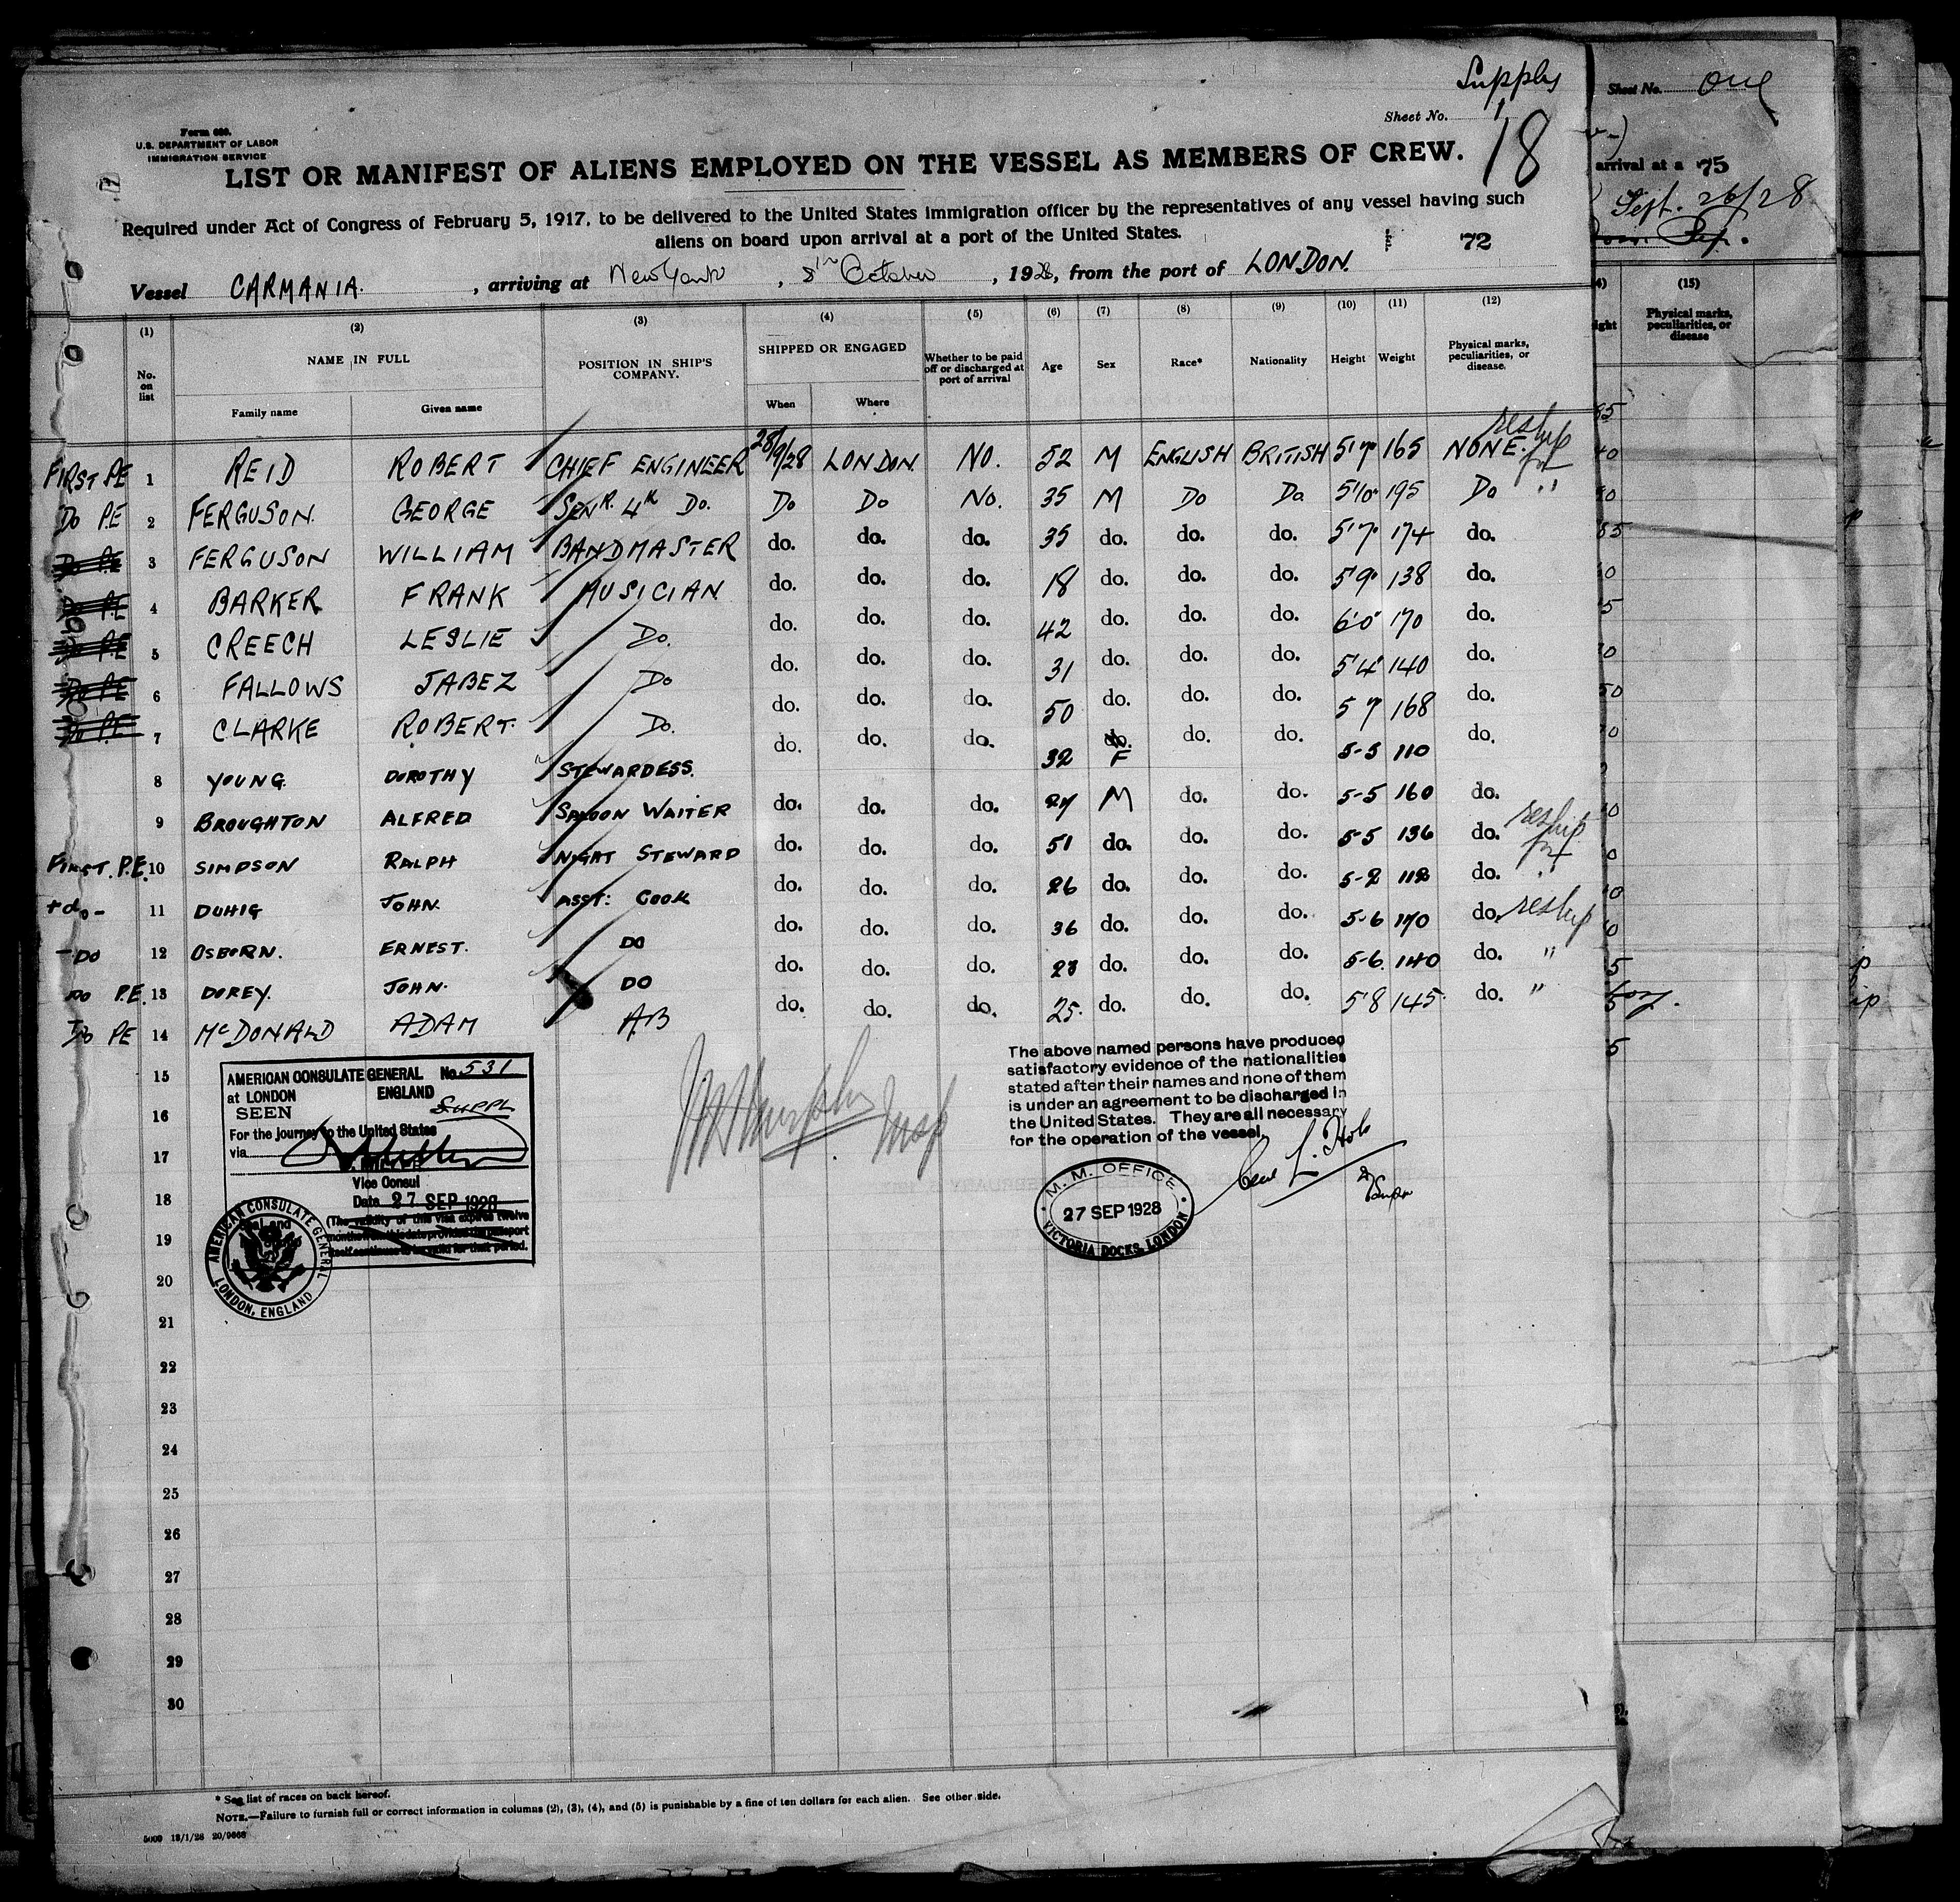 Supply
Sheet No. 1
18
Form 680.
U.S. DEPARTMENT OF LABOR
IMMIGRATION SERVICE
LIST OR MANIFEST OF ALIENS EMPLOYED ON THE VESSEL AS MEMBERS OF CREW.
Required under Act of Congress of February 5, 1917, to be delivered to the United States immigration officer by the representatives of any vessel having such
aliens on board upon arrival at a port of the United States.
72
Vessel CARMANIA. , arriving at New York , 8th October , 1928, from the port of LONDON.
(1) (2) (3) (4) (5) (6) (7) (8) (9) (10) (11) (12)
No. on list NAME IN FULL Family name Given name POSITION IN SHIP'S COMPANY. SHIPPED OR ENGAGED When Where Whether to be paid off or discharged at port of arrival Age Sex Race* Nationality Height Weight Physical marks, peculiarities, or disease.
FIRST PE 1 REID ROBERT CHIEF ENGINEER 28/9/28 LONDON. NO. 52 M ENGLISH BRITISH 5'7 165 NONE. reship
Do P.E 2 FERGUSON. GEORGE SENR. 4th Do. Do Do No. 35 M Do Do 5'10" 195 Do "
Do P.E 3 FERGUSON WILLIAM BANDMASTER do. do. do. 35 do. do. do. 5'7" 174 do.
Do P.E 4 BARKER FRANK MUSICIAN do. do. do. 18 do. do. do. 5'9" 138 do.
Do P.E 5 CREECH LESLIE Do. do. do. do. 42 do. do. do. 6'0" 170 do.
Do PE 6 FALLOWS JABEZ Do do. do. do. 31 do. do. do. 5'4" 140 do.
Do P.E 7 CLARKE ROBERT. Do. do. do. do. 50 do. do. do. 5 7 168 do.
8 YOUNG. DOROTHY STEWARDESS. do. do. do. 32 do. F do. do. 5-5 110 do.
9 BROUGHTON ALFRED SALOON WAITER do. do. do. 27 M do. do. 5-5 160 do.
FIRST. P.E. 10 SIMPSON RALPH NIGHT STEWARD do. do. do. 51 do. do. do. 5-5 136 do. reship
+do- 11 DUHIG JOHN. ASST: COOK do. do. do. 26 do. do. do. 5-2 112 do. "
-DO 12 OSBORN. ERNEST. DO do. do. do. 36 do. do. do. 5-6 170 do. reship
DO P.E. 13 DOREY. JOHN. DO do. do. do. 23 do. do. do. 5-6. 140 do. "
Do PE 14 McDONALD ADAM AB do. do. do. 25. do. do. do. 5'8 145. do. "
15
16
17
18
19
20
21
22
23
24
25
26
27
28
29
30
AMERICAN CONSULATE GENERAL No. 531
at LONDON ENGLAND
SEEN SUPPL
For the journey to the United States
via
Vice Consul
Date 27 SEP 1928
(The validity of this visa expires twelve
months from this date provided the passport
itself continues to be valid for that period.
AMERICAN CONSULATE GENERAL
LONDON, ENGLAND
The above named persons have produced
satisfactory evidence of the nationalities
stated after their names and none of them
is under an agreement to be discharged in
the United States. They are all necessary
for the operation of the vessel.
M. M. OFFICE
27 SEP 1928
VICTORIA DOCKS, LONDON
* See list of races on back hereof.
NOTE.—Failure to furnish full or correct information in columns (2), (3), (4), and (5) is punishable by a fine of ten dollars for each alien. See other side.
Sheet No. One
arrival at a 75
Sept. 26/28
(15)
Physical marks,
peculiarities, or
disease